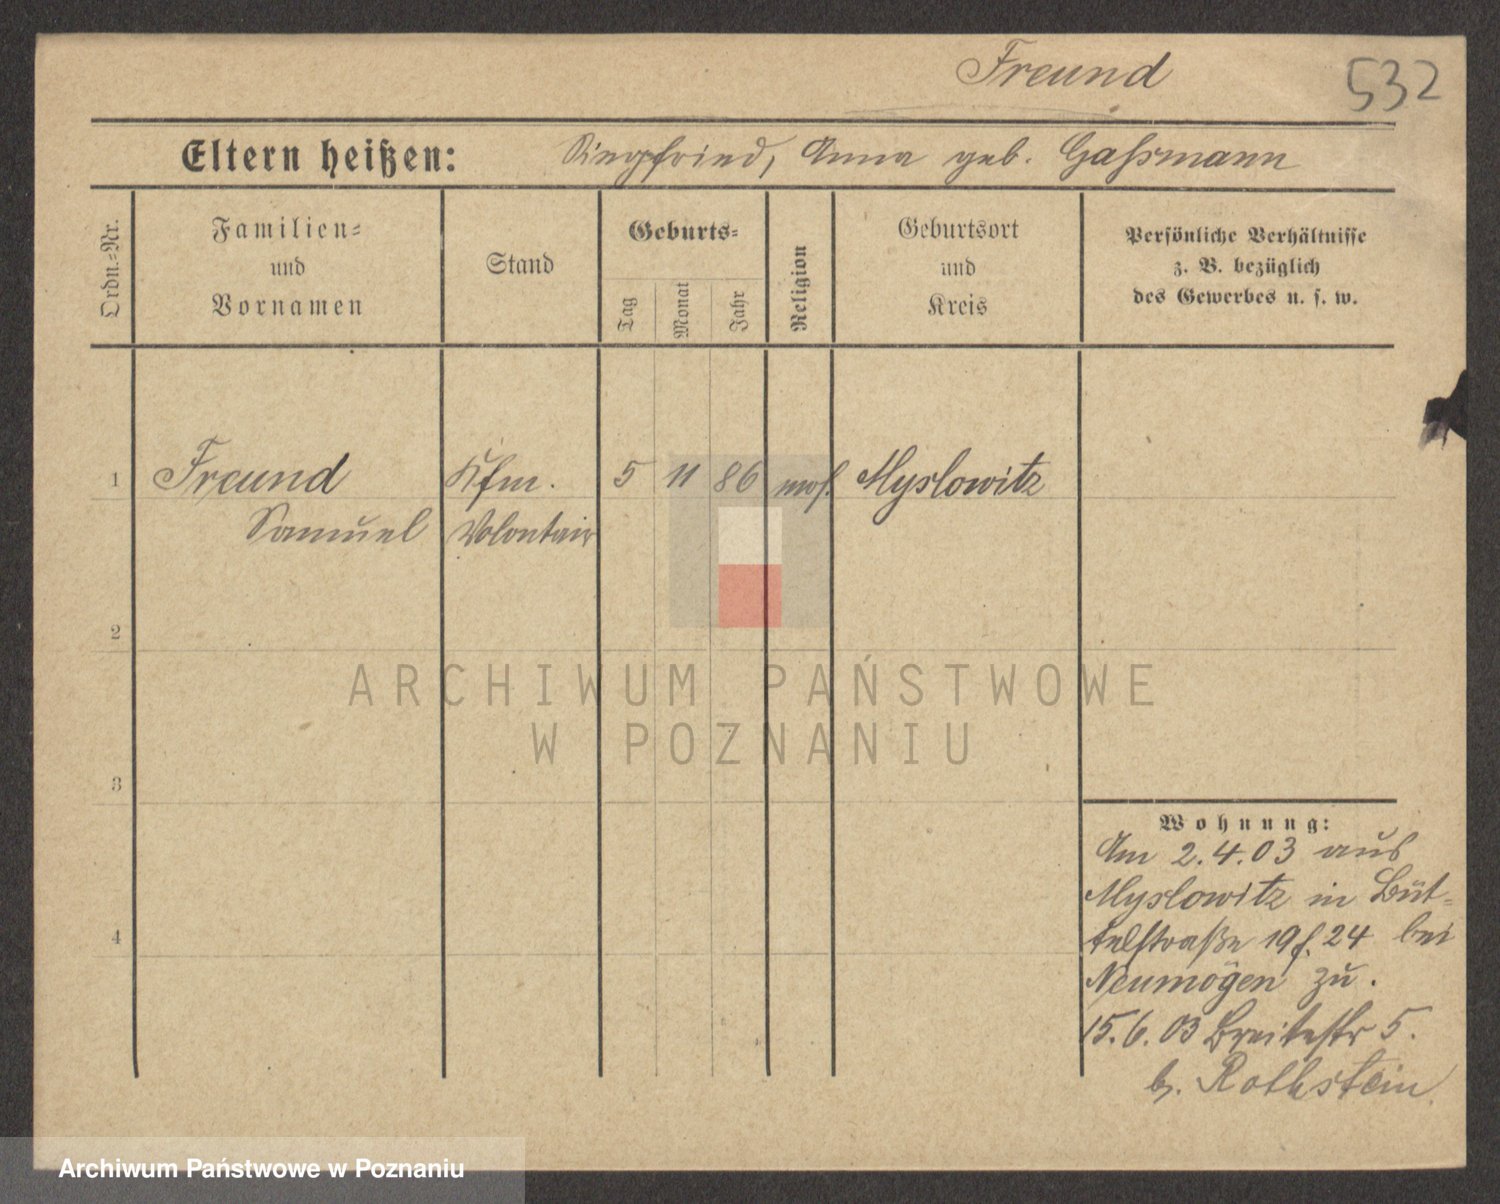 Freund
532
Eltern heißen: Siegfried, Anna geb. Gaßmann
Ordn.=Nr.
Familien=
und
Vornamen
Stand
Geburts=
Tag
Monat
Jahr
Religion
Geburtsort
und
Kreis
Persönliche Verhältnisse
z. B. bezüglich
des Gewerbes u. s. w.
1 Freund Kfm. 5 11 86 mos. Myslowitz
Samuel Volontair
2
3
4
Wohnung:
Am 2.4.03 aus
Myslowitz in Büt=
telstraße 19 f. 24 bei
Neumögen zu.
15.6.03 Breitestr 5.
b. Rothstein
ARCHIWUM PAŃSTWOWE
W POZNANIU
Archiwum Państwowe w Poznaniu